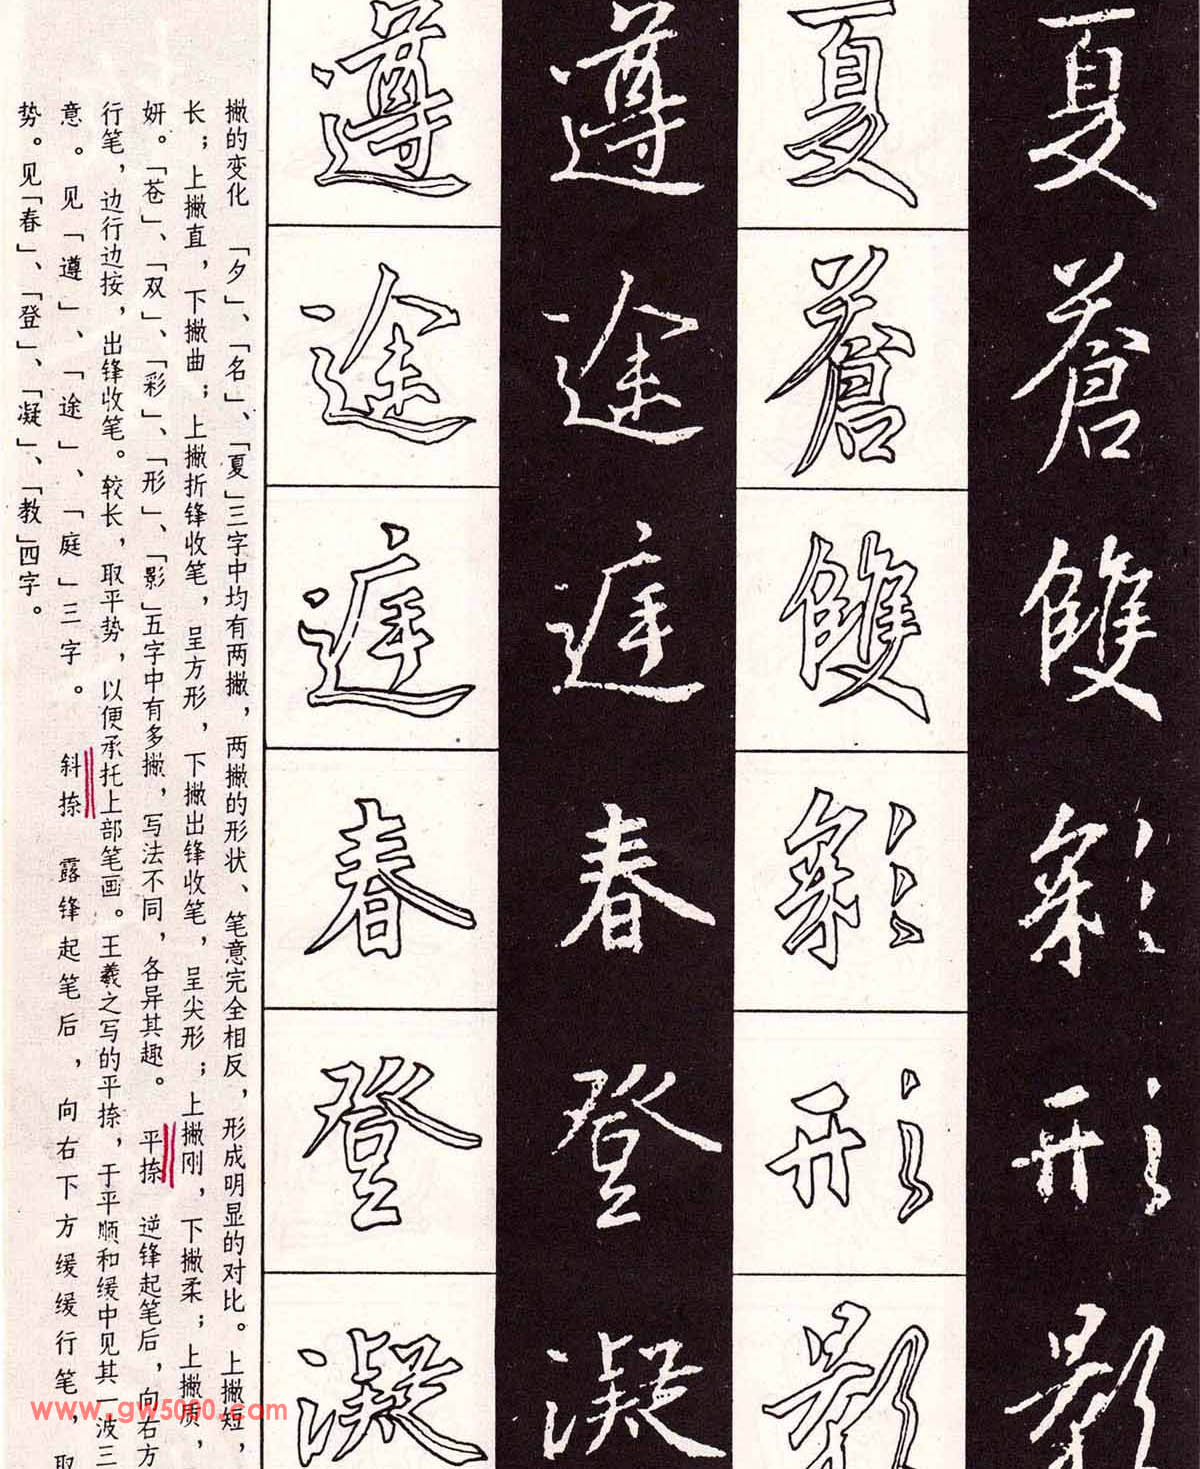 夏
蒼
雙
彩
形
影
夏
蒼
雙
彩
形
影
遵
途
庭
春
登
凝
遵
途
庭
春
登
凝
撇的变化 「夕」、「名」、「夏」三字中均有两撇，两撇的形状、笔意完全相反，形成明显的对比。上撇短，
长；上撇直，下撇曲；上撇折锋收笔，呈方形，下撇出锋收笔，呈尖形；上撇刚，下撇柔；上撇质，
妍。「苍」、「双」、「彩」、「形」、「影」五字中有多撇，写法不同，各异其趣。 平捺 逆锋起笔后，向右方
行笔，边行边按，出锋收笔。较长，取平势，以便承托上部笔画。王羲之写的平捺，于平顺和缓中见其一波三
意。见「遵」、「途」、「庭」三字。 斜捺 露锋起笔后，向右下方缓缓行笔，取
势。见「春」、「登」、「凝」、「教」四字。
www.gw5000.com